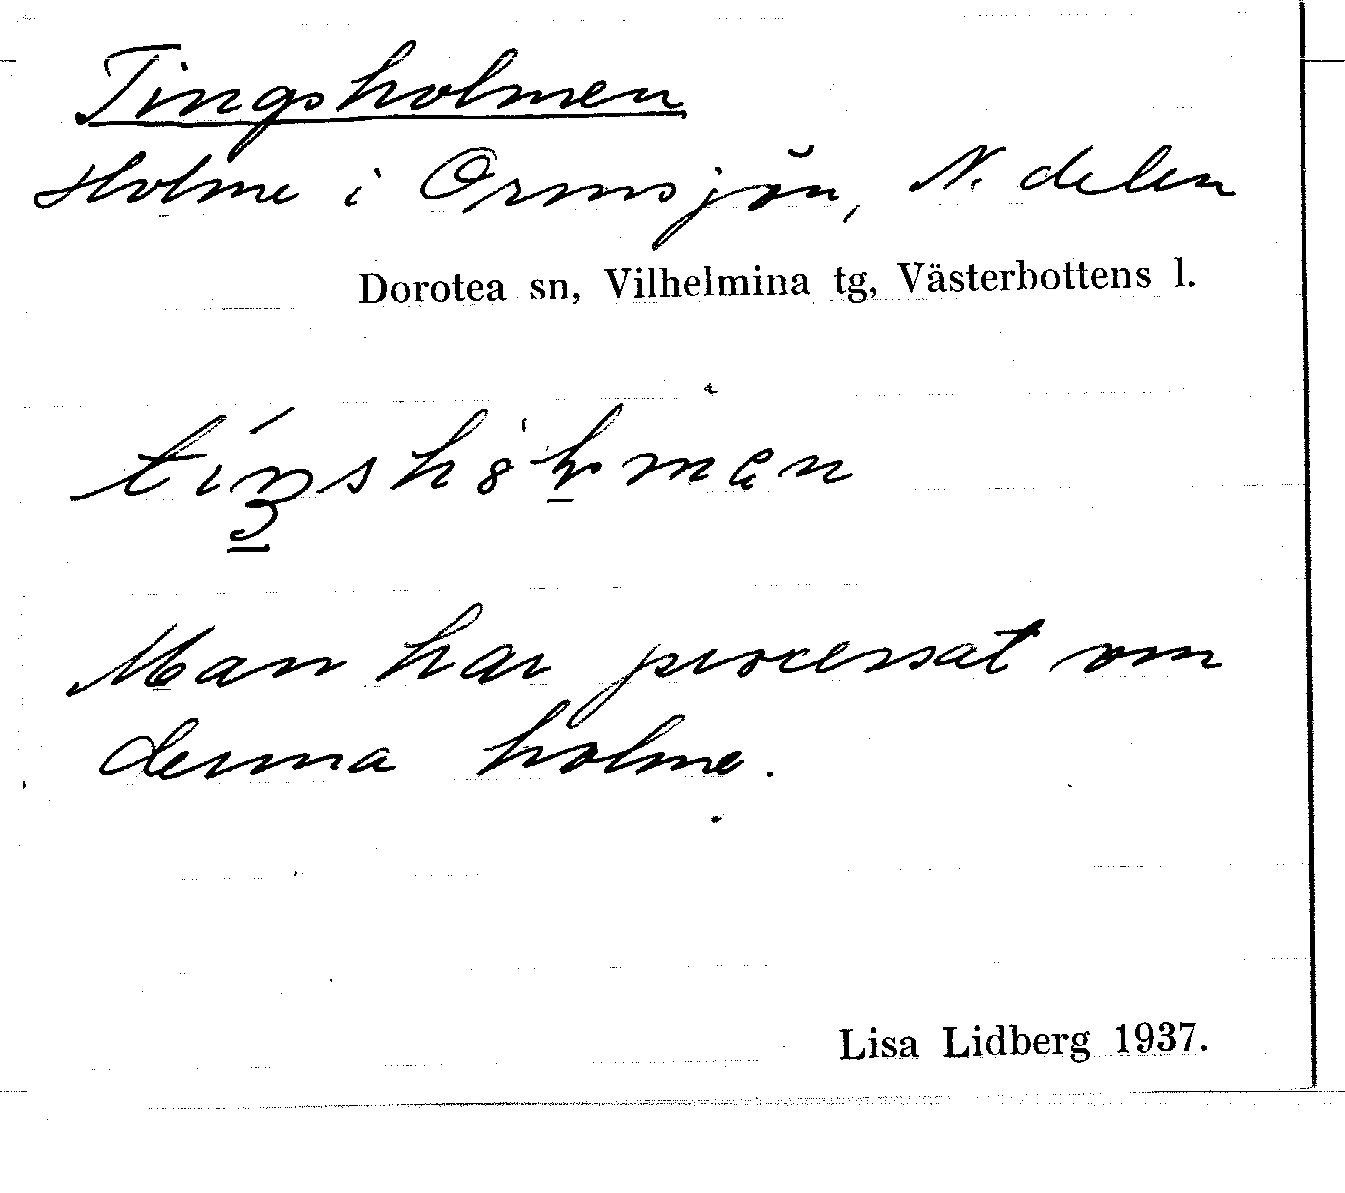 Tingsholmen
Holme i Ormsjön, N. delen
Dorotea sn, Vilhelmina tg, Västerbottens l.
Man har processat om
denna holme.
Lisa Lidberg 1937.